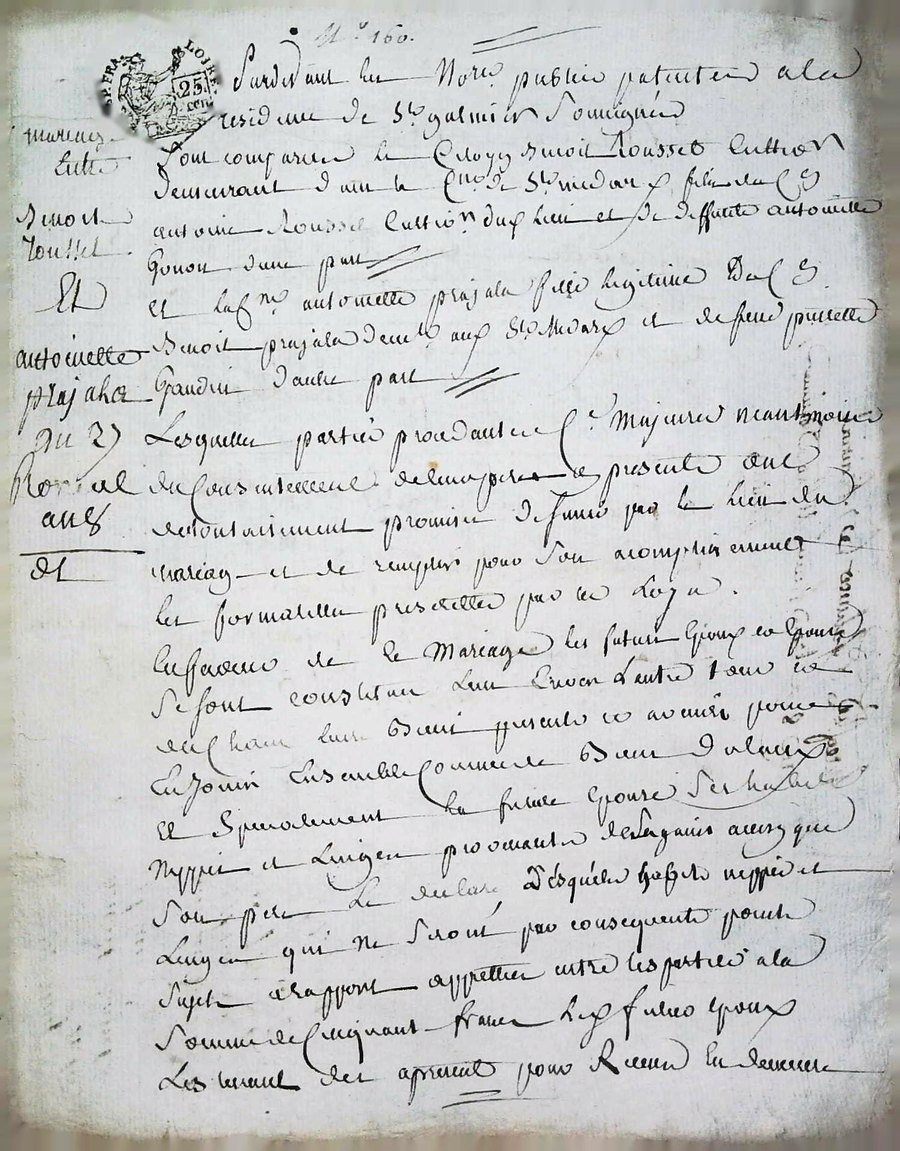 N° 160.
LOIRE
25
cen
Pardevant les No.re public patenté a la
residence de St galmier soussigné
mariage
Entre
Benoit
Rousset
Et
antoinette
prajalas
Du 27
floreal
an 8
Sont comparus le Citoyen Benoit Rousset Cultier
demeurant dans la C.ne de St medard, fils du C.
antoine Rousset Cultier dud. lieu et de deffunte antoinette
Gonon d'une part
et la C.ne antoinette prajala fille legitime du C.
Benoit prajala demt. aud. St Medard et de feue pierrette
Gaudin d'autre part
Lesquelles parties procedantes Majeures neantmoins
du Consentement de leurs peres presents ont
reciproquement promises de s'unir par le lien du
mariage et de remplir pour son acomplissement
les formalités prescrittes par les Loix.
En faveur de ce Mariage les futurs Epoux et Epouse
se sont constitués l'un Envers L'autre tous et
un Chacun leurs Biens presents et avenirs pour
En Jouir Ensemble Comme de Biens dotaux
Et specialement la future Epouse ses habits
nippes et Linges provenants de ses gains ainsy que
son pere Le declare, desquels habits nippes et
Linges qui ne seront par consequent point
sujets a rapport appretiés entre les parties a la
somme de Cinquante francs led. futur Epoux
Les tenant des apresent pour Recus En demeure